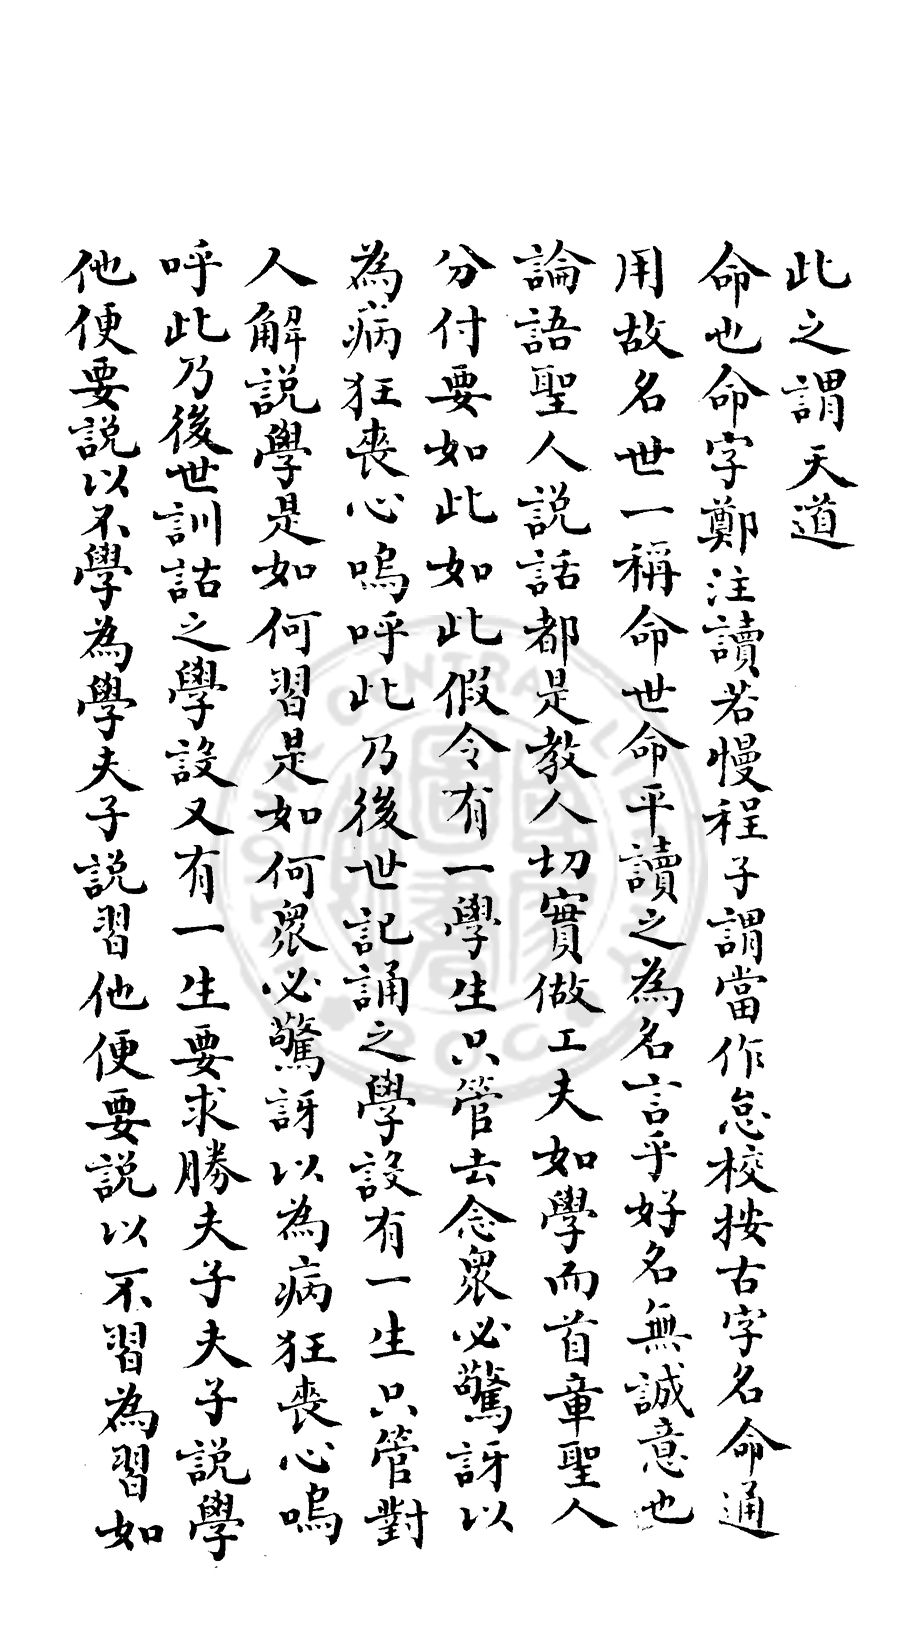 此之謂天道
命也命字鄭注讀若慢程子謂當作怠校按古字名命通
用故名世一稱命世命平讀之為名言乎好名無誠意也
論語聖人説話都是教人切實做工夫如學而首章聖人
分付要如此如此假令有一學生只管去念衆必驚訝以
為病狂喪心嗚呼此乃後世記誦之學設有一生只管對
人解説學是如何習是如何衆必驚訝以為病狂喪心嗚
呼此乃後世訓詁之學設又有一生要求勝夫子夫子説學
他便要説以不學為學夫子説習他便要説以不習為習如